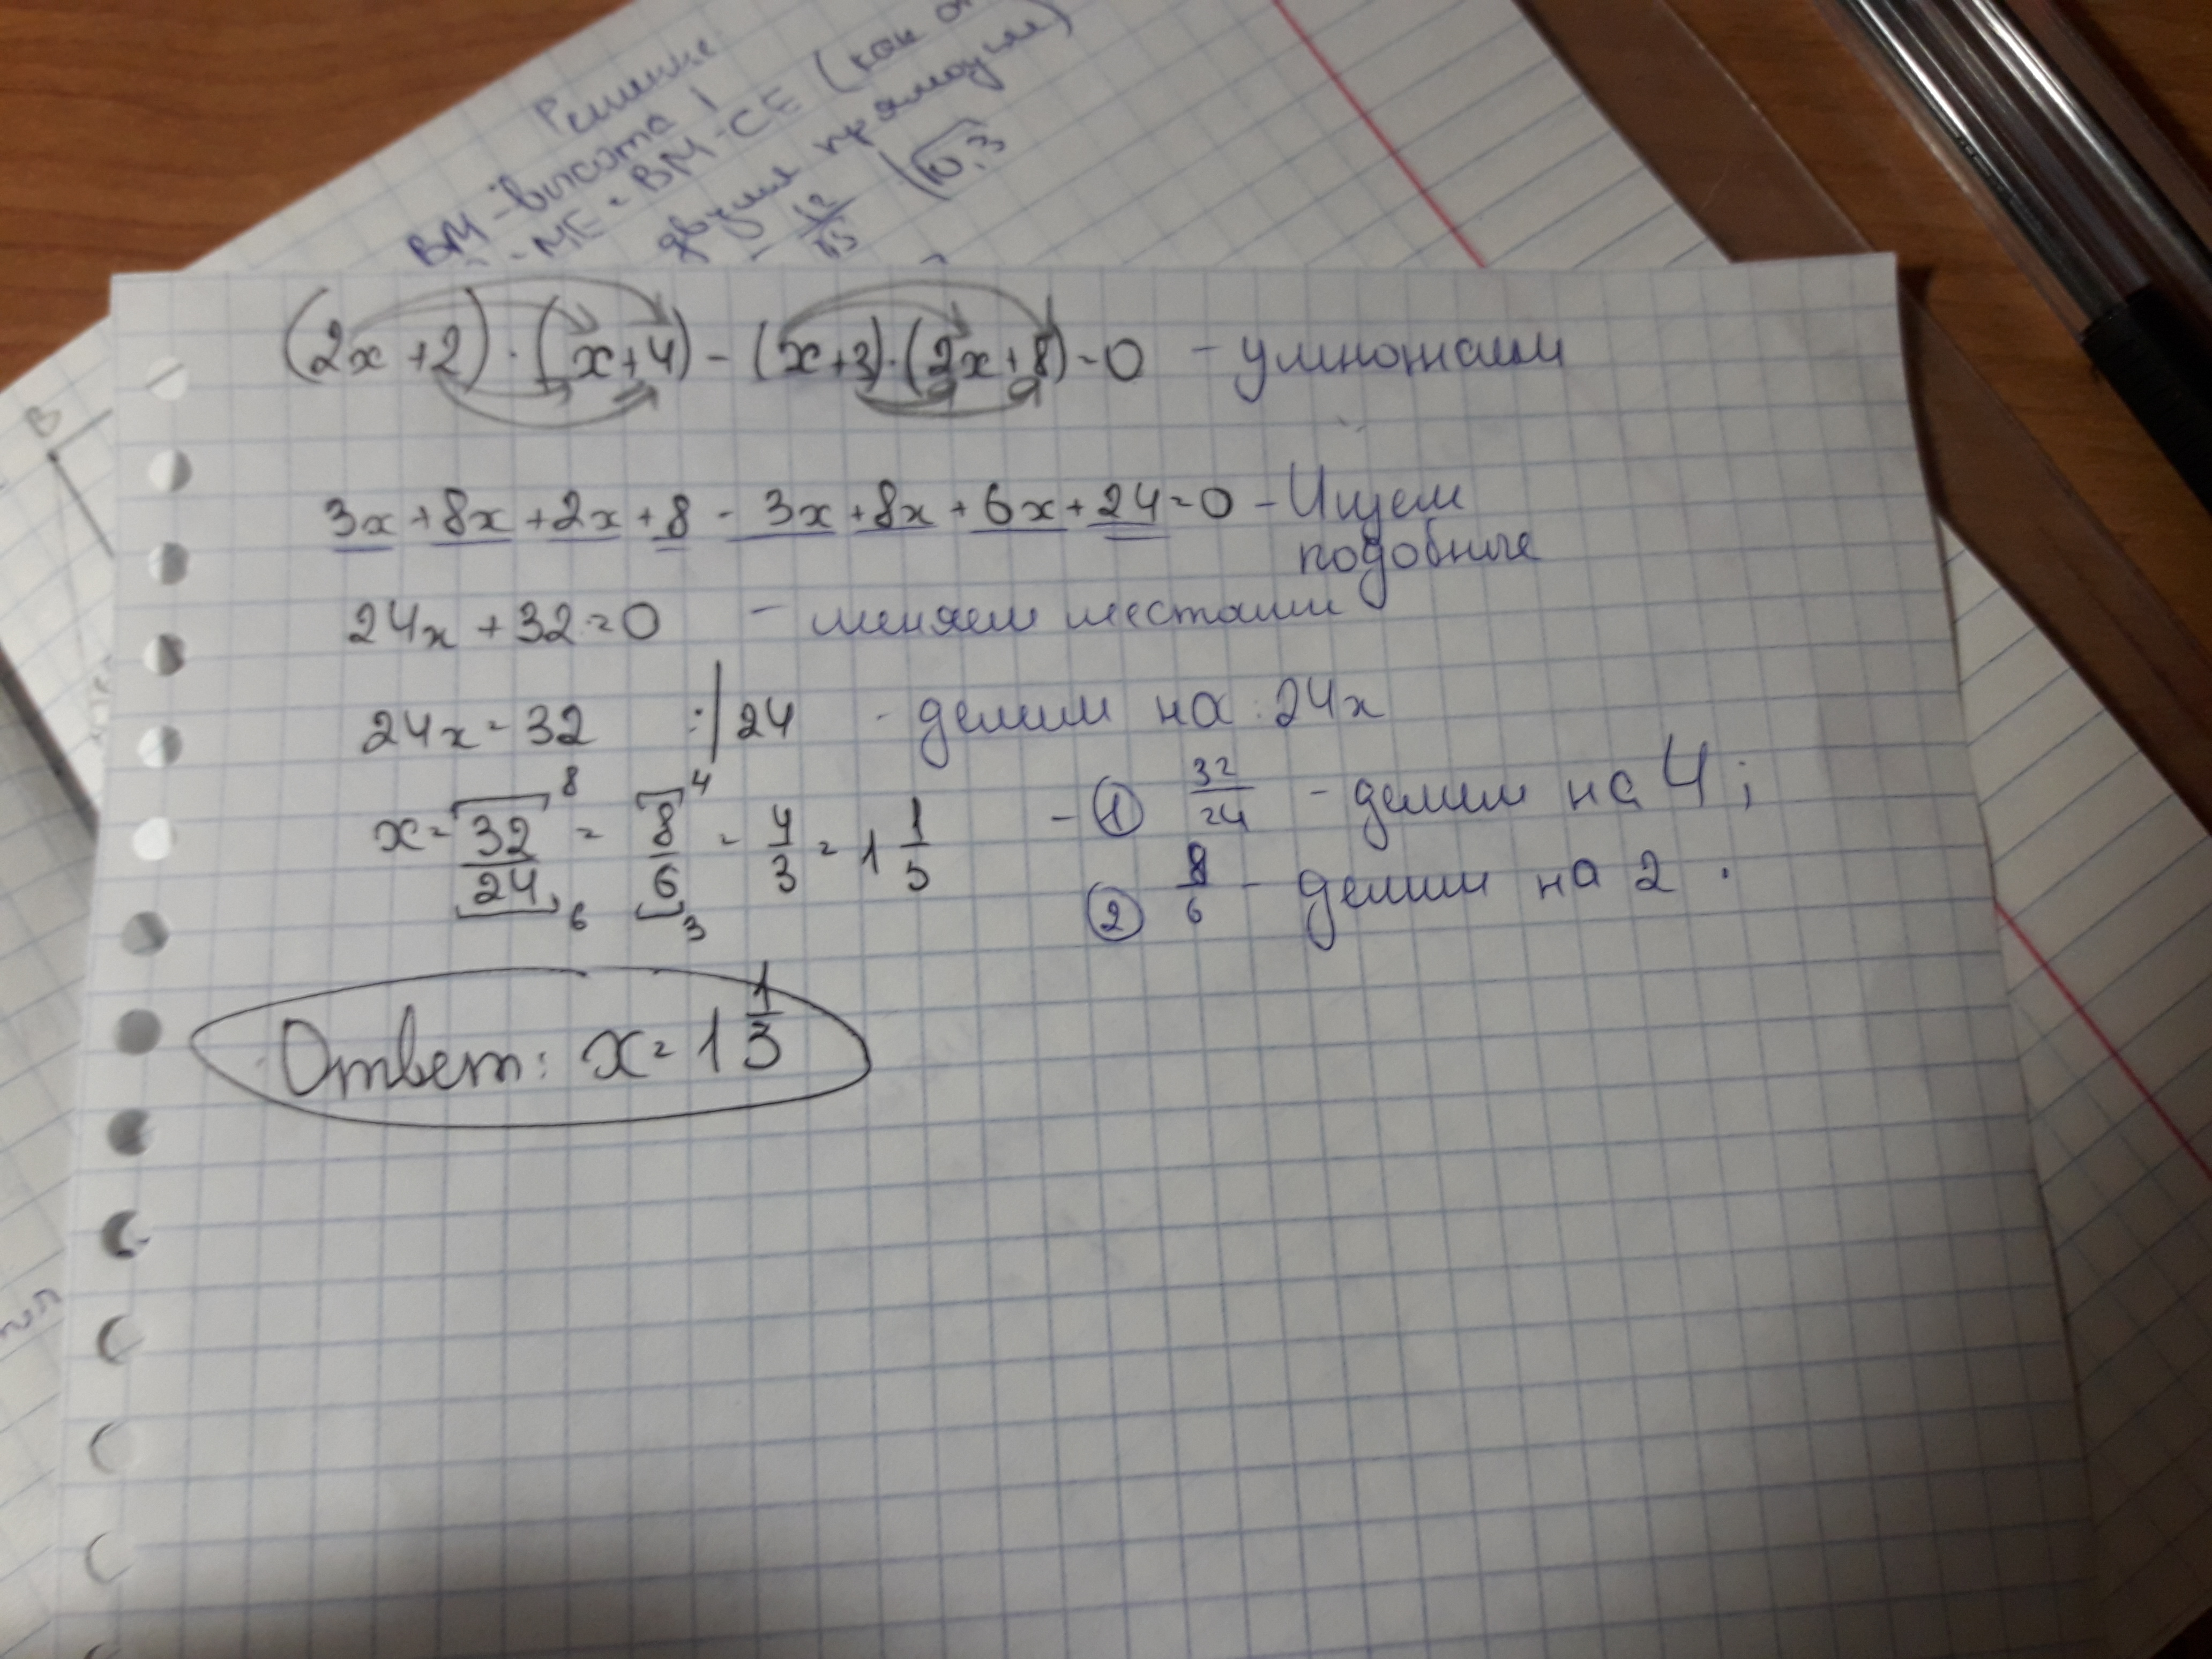 Решение
BM - высота
ME = BM - CE (как
двумя
12
(2x+2)·(x+4)-(x+3)·(2x+8)=0 - умножаем
3x+8x+2x+8-3x+8x+6x+24=0 - Ищем
подобные
24x+32=0 - меняем местами
24x=32 :|24 - делим на 24x
x=32/24=8/6=4/3=1 1/3 - ① 32/24 - делим на 4;
8 6 4 3
② 8/6 - делим на 2.
Ответ: x=1 1/3
B